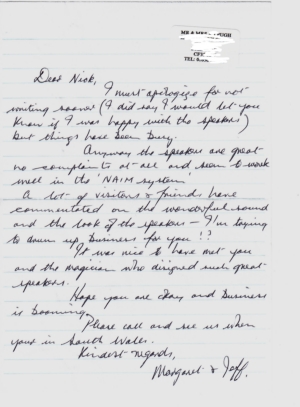 MR & MRS
TEL:
Dear Nick,
I must apologize for not
writing sooner (I did say I would let you
know if I was happy with the speakers)
but things have been busy.
Anyway the speakers are great
no complaints at all and seem to work
well in the 'NAIM system'
A lot of visitors & friends have
commentated on the wonderful sound
and the look of the speakers – I'm trying
to drum up business for you!?
It was nice to have met you
and the magician who designed such great
speakers.
Hope you are okay and business
is booming
Please call and see us when
your in South Wales.
Kindest regards,
Margaret & Jeff.